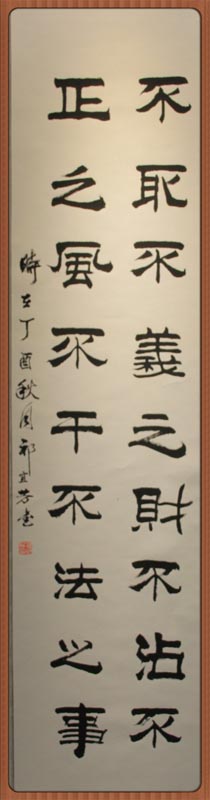 不取不義之財不沾不
正之風不干不法之事
時在丁酉秋月祁宜芳書